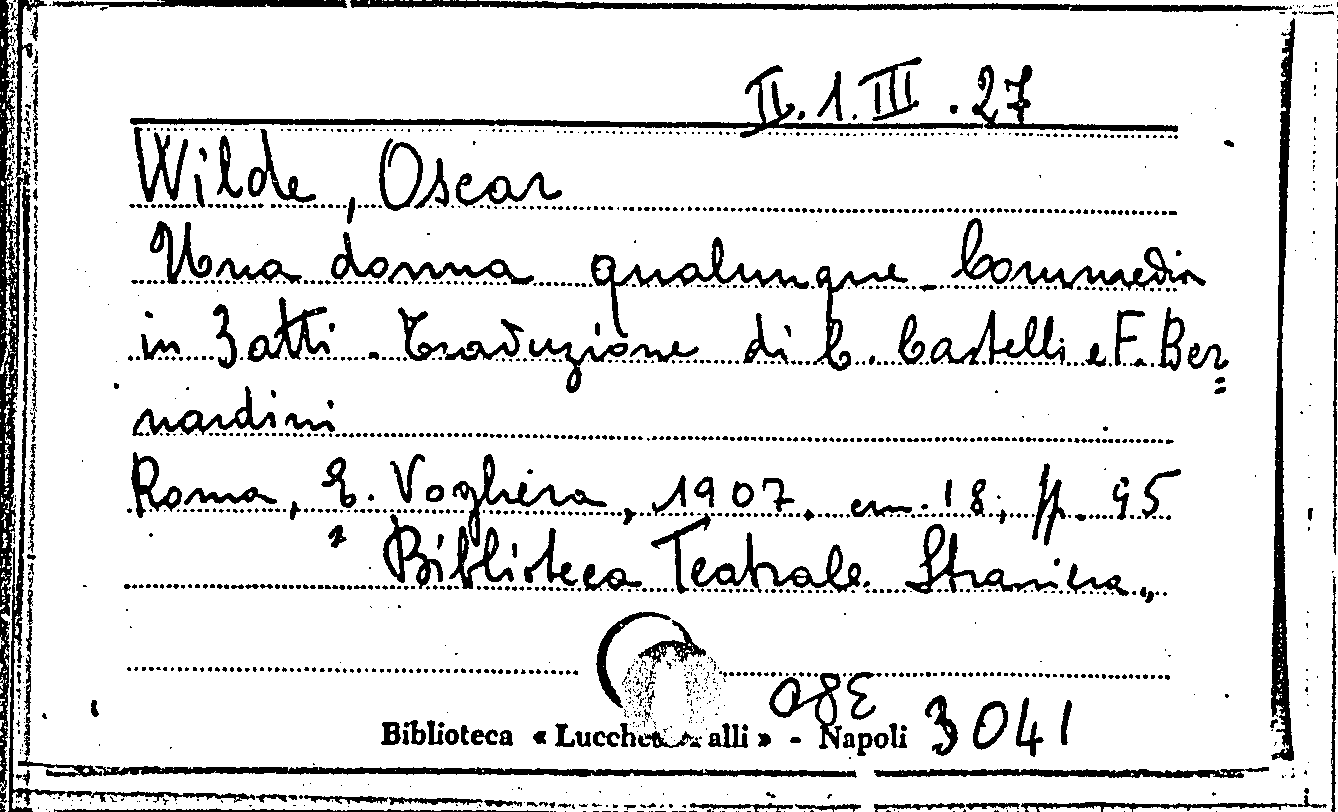 II.1.III.27
Wilde, Oscar
Una donna qualunque. Commedia
in 3 atti. Traduzione di C. Castelli e F. Ber=
nardini
Roma, E. Voghera, 1907. cm. 18; pp. 95
" Biblioteca Teatrale Straniera "
Biblioteca « » - Napoli 3041